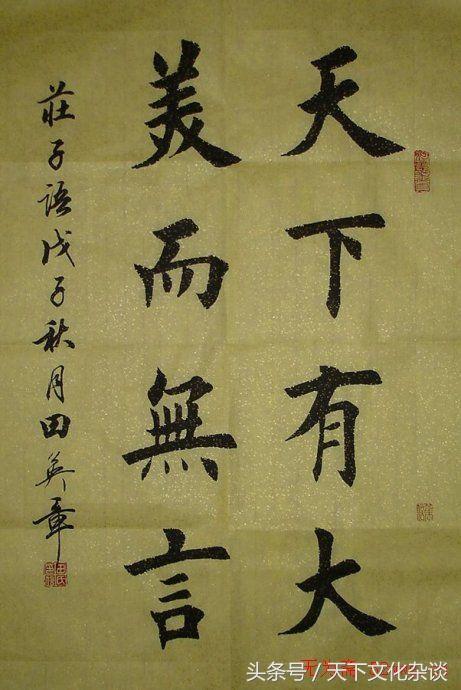 天下有大
美而無言
莊子語戊子秋月田英章
头条号／天下文化杂谈